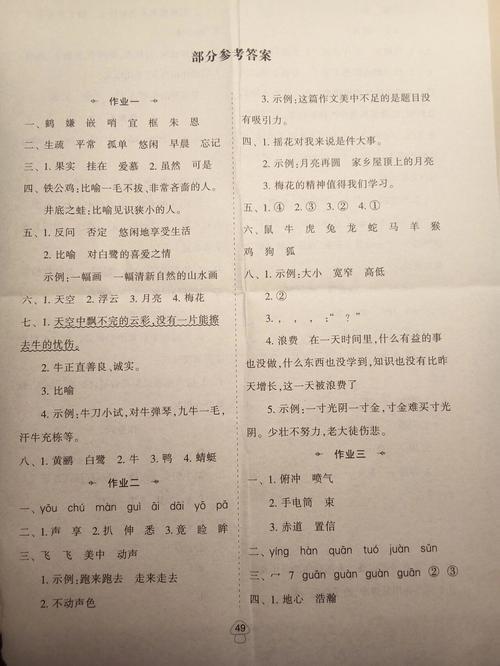 部分参考答案
作业一
一、鹤 嫌 嵌 哨 宜 框 朱 恩
二、生疏 平常 孤单 悠闲 早晨 忘记
三、1. 果实 挂在 爱慕 2. 虽然 可是
四、铁公鸡:比喻一毛不拔、非常吝啬的人。
井底之蛙:比喻见识狭小的人。
五、1. 反问 否定 悠闲地享受生活
2. 比喻 对白鹭的喜爱之情
示例:一幅画 一幅清新自然的山水画
六、1. 天空 2. 浮云 3. 月亮 4. 梅花
七、1. 天空中飘不完的云彩,没有一片能擦
去牛的忧伤。
2. 牛正直善良、诚实。
3. 比喻
4. 示例:牛刀小试,对牛弹琴,九牛一毛,
汗牛充栋等。
八、1. 黄鹂 白鹭 2. 牛 3. 鸭 4. 蜻蜓
作业二
一、yōu chú màn guì āi dāi yō pā
二、1. 声 享 2. 扒 伸 悉 3. 竟 睑 眸
三、飞 飞 美中 动声
1. 示例:跑来跑去 走来走去
2. 不动声色
3. 示例:这篇作文美中不足的是题目没
有吸引力。
四、1. 摇花对我来说是件大事。
2. 示例:月亮再圆 家乡屋顶上的月亮
3. 梅花的精神值得我们学习。
五、1. ④ 2. ③ 3. ② 4. ①
六、鼠 牛 虎 兔 龙 蛇 马 羊 猴
鸡 狗 狐
八、1. 示例:大小 宽窄 高低
2. ②
3. , , ,:“ ? ”
4. 浪费 在一天时间里,什么有益的事
也没做,什么东西也没学到,知识也没有比昨
天增长,这一天被浪费了
5. 示例:一寸光阴一寸金,寸金难买寸光
阴。少壮不努力,老大徒伤悲。
作业三
一、1. 俯冲 喷气
2. 手电筒 束
3. 赤道 置信
二、yíng hàn quān tuó juàn sǔn
三、冖 7 guān guàn guàn guān ② ③
四、1. 地心 浩瀚
49